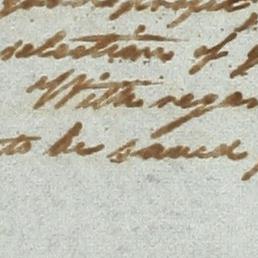 selection of
With regar
to be saved